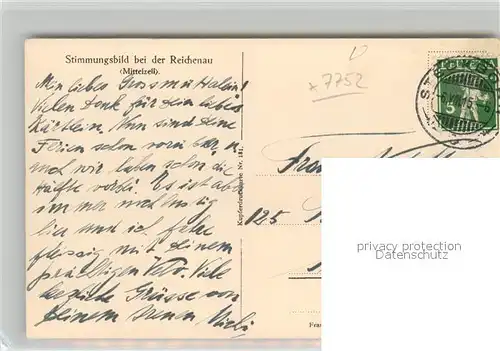 Stimmungsbild bei der Reichenau
(Mittelzell).
Mein liebes Grossmutterlein!
Vielen Dank für Dein liebes
Kärtlein. Nun sind Deine
Ferien schon vorüber, u.
auch wir haben schon die
Hälfte vorbei. Es ist aber
immer noch lustig
hier und ich fahre
fleissig mit Deinem
prächtigen Velo. Viele
herzliche Grüsse von
Deinem
x 7752
Kupferdruckkarte Nr. 181.
HELVETIA
5
125
Fran
privacy protection
Datenschutz